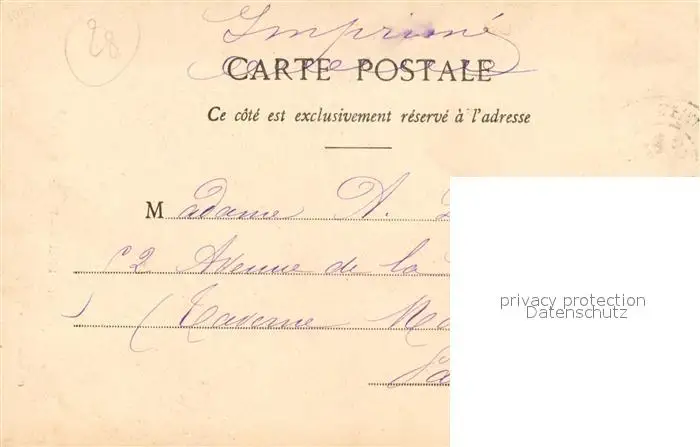 28
Imprimé
CARTE POSTALE
Ce côté est exclusivement réservé à l'adresse
Madame A.
2 Avenue de la
(Taverne
privacy protection
Datenschutz